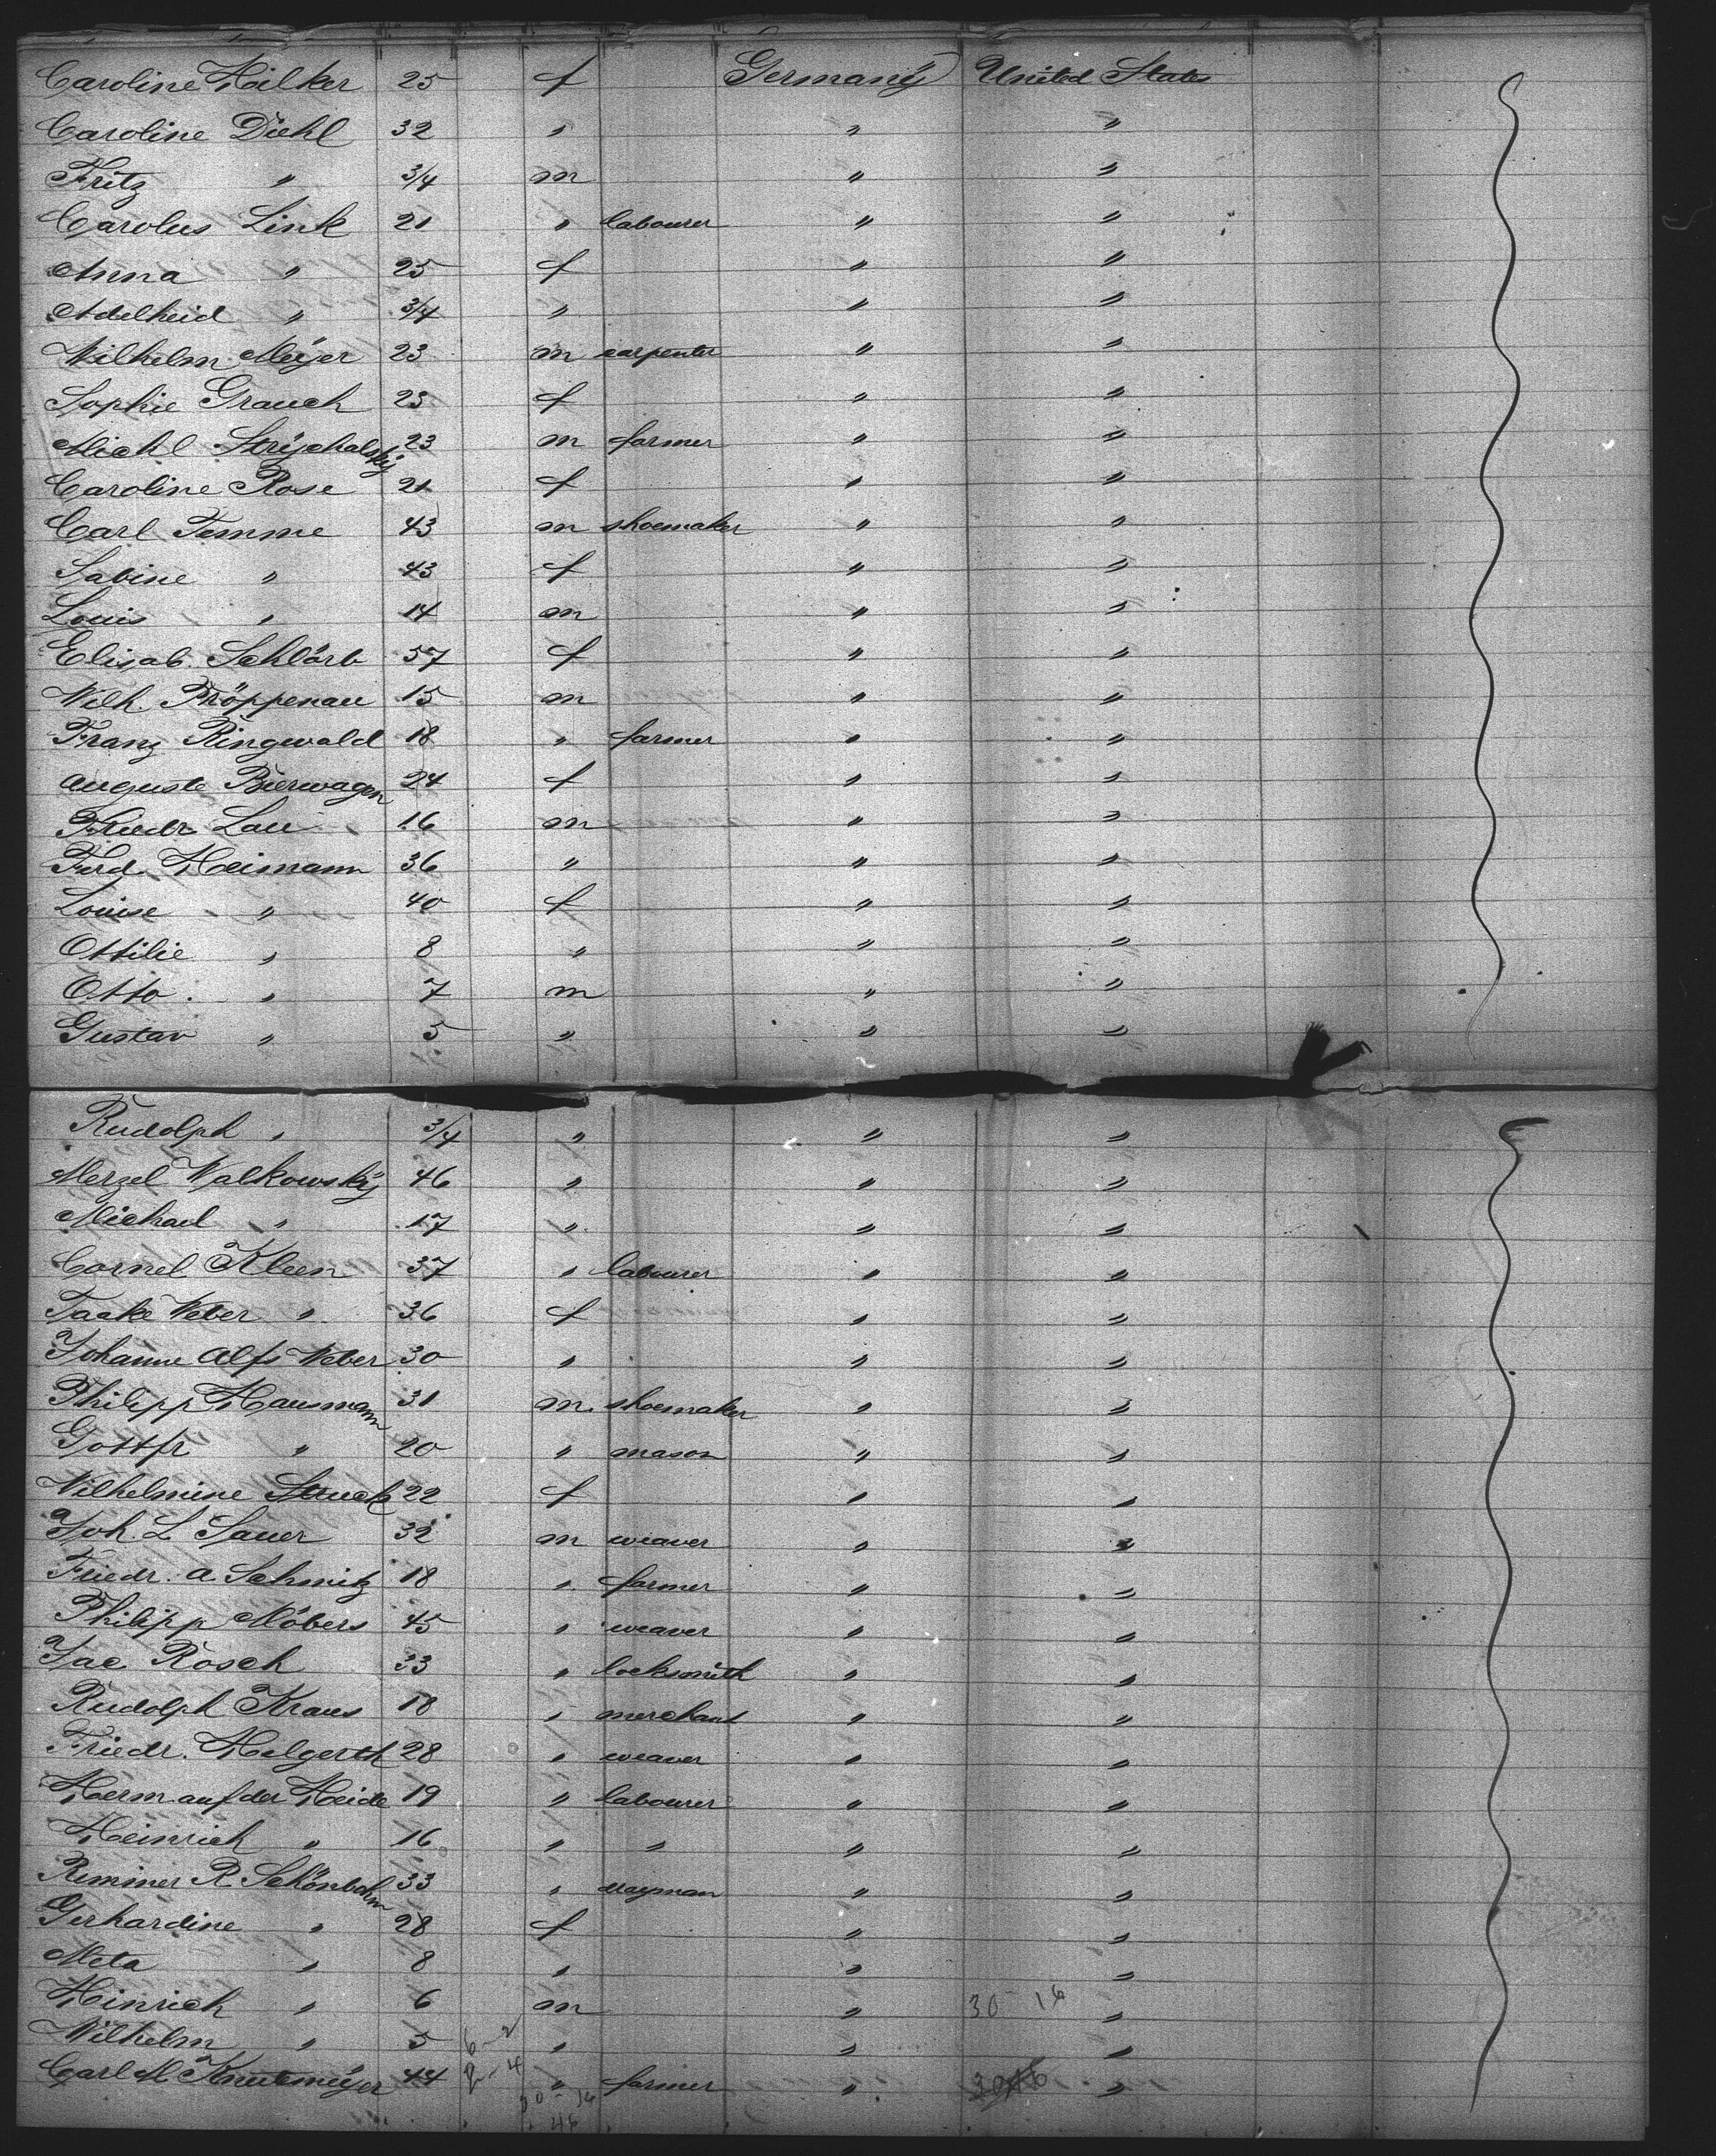 Caroline Hilker 25 f Germany United States
Caroline Diehl 32 " " "
Fritz " 3/4 m " "
Carolus Link 21 " labourer " "
Anna " 25 f " "
Adelheid " 3/4 " " "
Wilhelm Meÿer 23 m carpenter " "
Sophie Grauch 23 f " "
Michl Strÿchalskÿ 23 m farmer " "
Caroline Rose 21 f " "
Carl Temme 43 m shoemaker " "
Sabine " 43 f " "
Louis " 14 m " "
Elisab. Schlörb 57 f " "
Wilh. Pröppenau 15 m " "
Franz Ringwald 18 " farmer " "
Auguste Bierwagen 24 f " "
Friedr. Lau 16 m " "
Ferd. Heimann 36 " " "
Louise " 40 f " "
Ottilie " 8 " " "
Otto " 7 m " "
Gustav " 5 " " "
Rudolph " 3/4 " " "
Merzel Walkowskÿ 46 " " "
Michael " 17 " " "
Cornel Kleen 37 " labourer " "
Taake Weber " 36 f " "
Johanne Alfs Weber 30 " " "
Philipp Hausmann 31 m shoemaker " "
Gottfr " 20 " mason " "
Wilhelmine Struck 22 f " "
Joh. L. Sauer 32 m weaver " "
Friedr. A. Schmitz 18 " farmer " "
Philipp Möbers 45 " weaver " "
Jac Rosch 33 " locksmith " "
Rudolph Kraus 18 " merchant " "
Friedr. Helgerth 28 " weaver " "
Herm. auf der Heide 19 " labourer " "
Heinrich " 16 " " " "
Remmer R. Schönbohm 33 " " "
Gerhardine " 28 f " "
Meta " 8 " " "
Hinrich " 6 m " 30 - 16 "
Wilhelm " 5 6-2 " " "
Carl M. Knutmeÿer 44 2-4 " farmer " "
30 - 16
46